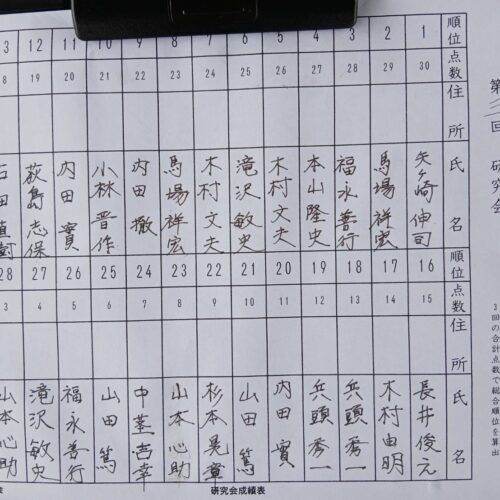 第三回 研究会
3回の合計点数で総合順位を算出
順位 1 2 3 4 5 6 7 8 9 10 11 12
点数 30 29 28 27 26 25 24 23 22 21 20 19
住所
氏名 矢ヶ崎 伸司 馬場 祥宏 福永 善行 本山 隆史 木村 文夫 滝沢 敏史 木村 文夫 馬場 祥宏 内田 撤 小林 晋作 内田 實 荻島 志保
順位 16 17 18 19 20 21 22 23 24 25 26 27 28
点数 15 14 13 12 11 10 9 8 7 6 5 4 3
住所
氏名 長井 俊元 木村 由明 兵頭 秀一 兵頭 秀一 内田 實 山田 篤 杉本 晃 山本 心助 中茎 吉幸 山田 篤 福永 善行 滝沢 敏史 山本 心助
研究会成績表